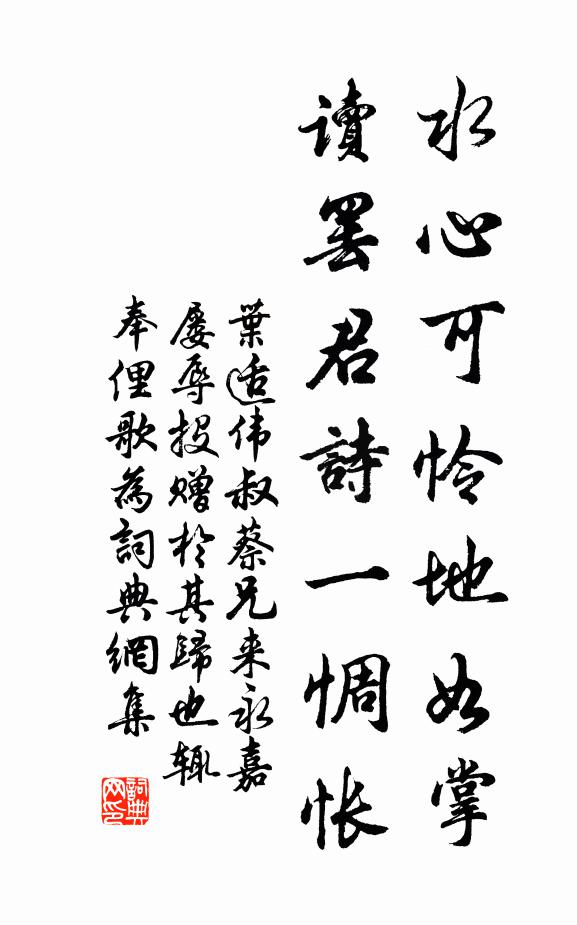 水心可怜地如掌
讀罢君詩一惆怅
葉适伟叔蔡兄来永嘉
屡辱投赠於其歸也辄
奉俚歌為詞典網集
詞典网印